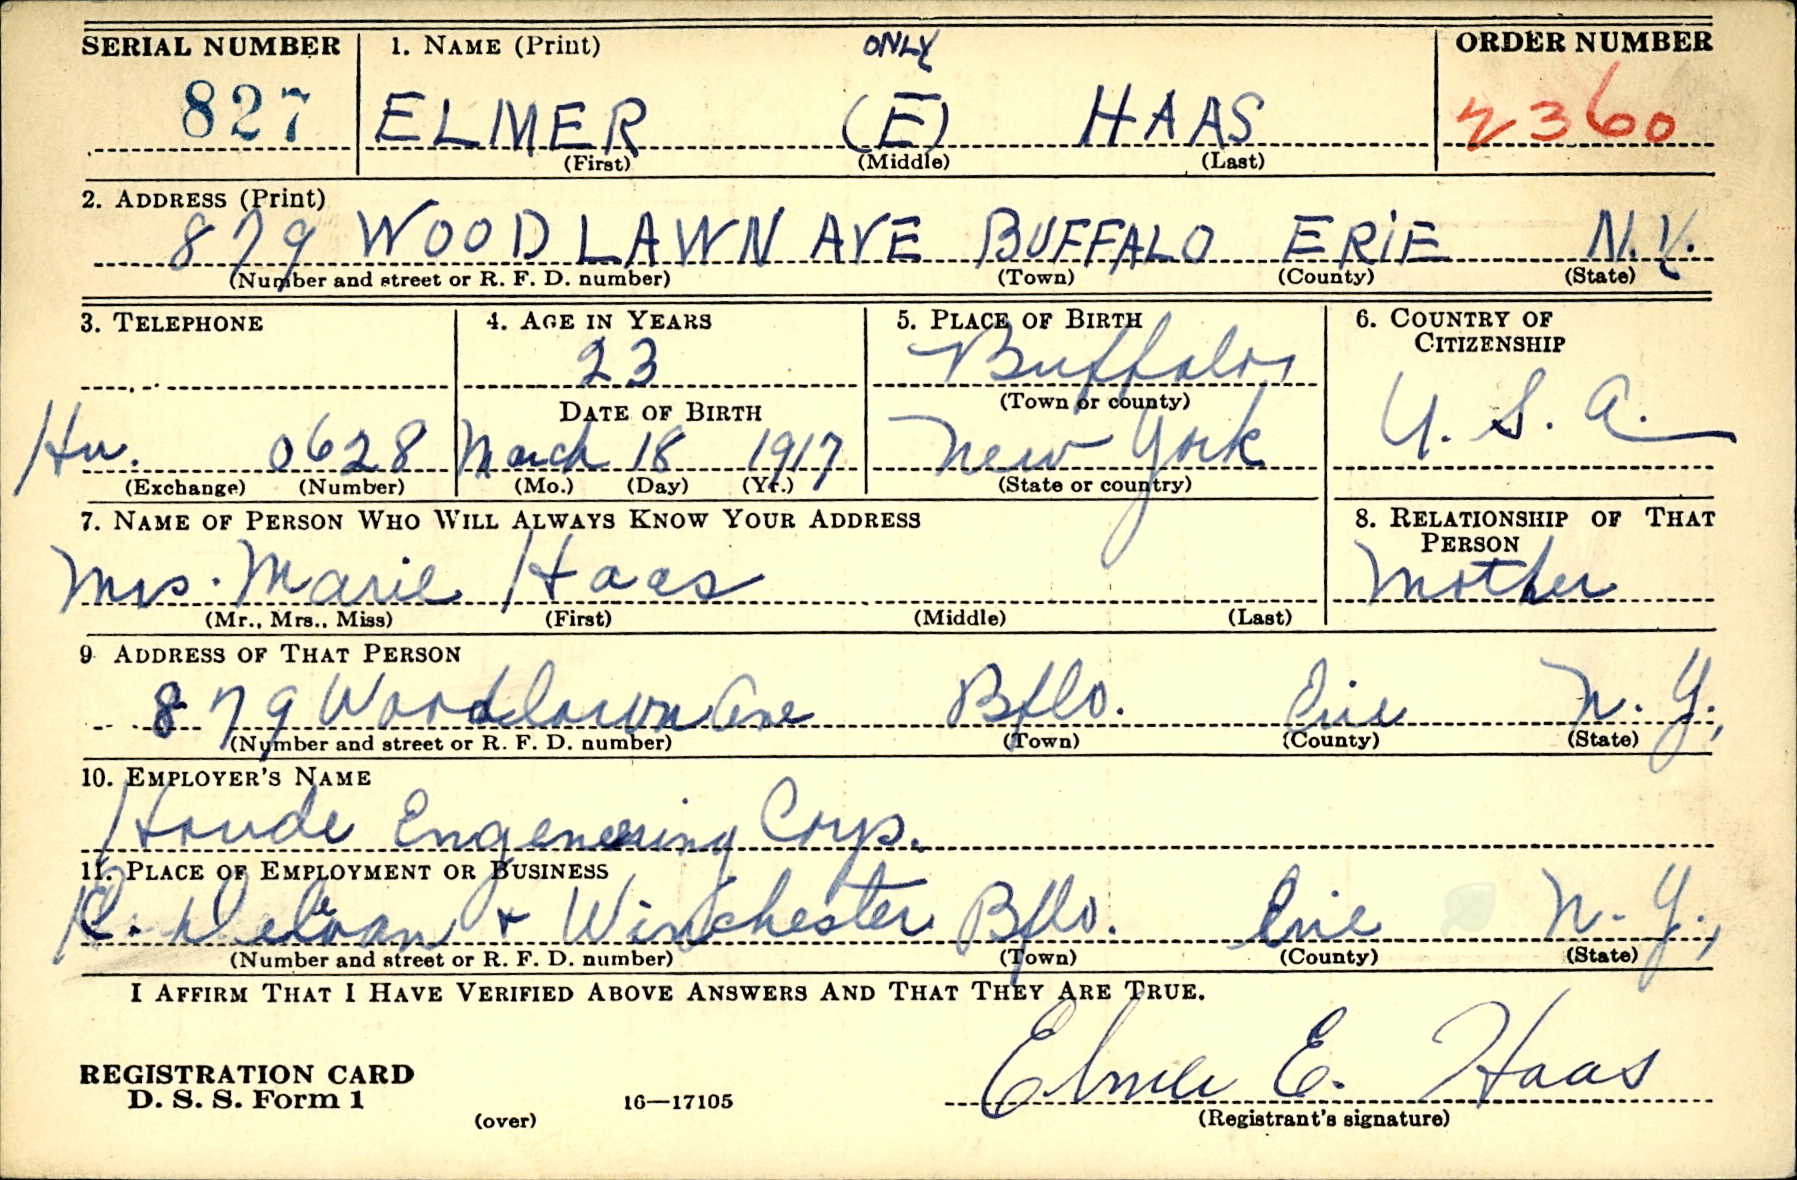 SERIAL NUMBER 1. NAME (Print) ONLY ORDER NUMBER
827 ELMER (E) HAAS 2360
(First) (Middle) (Last)
2. ADDRESS (Print)
879 WOODLAWN AVE BUFFALO ERIE N.Y.
(Number and street or R. F. D. number) (Town) (County) (State)
3. TELEPHONE 4. AGE IN YEARS 5. PLACE OF BIRTH 6. COUNTRY OF
CITIZENSHIP
23 Buffalo
DATE OF BIRTH (Town or county) U. S. A.
Hu. 0628 March 18 1917 New York
(Exchange) (Number) (Mo.) (Day) (Yr.) (State or country)
7. NAME OF PERSON WHO WILL ALWAYS KNOW YOUR ADDRESS 8. RELATIONSHIP OF THAT
PERSON
Mrs. Marie Haas Mother
(Mr., Mrs., Miss) (First) (Middle) (Last)
9 ADDRESS OF THAT PERSON
879 Woodlawn Ave Bflo. Erie N. Y.,
(Number and street or R. F. D. number) (Town) (County) (State)
10. EMPLOYER'S NAME
Houde Engeneering Corp.
11. PLACE OF EMPLOYMENT OR BUSINESS
Delevan + Winchester Bflo. Erie N. Y.,
(Number and street or R. F. D. number) (Town) (County) (State)
I AFFIRM THAT I HAVE VERIFIED ABOVE ANSWERS AND THAT THEY ARE TRUE.
Elmer E. Haas
REGISTRATION CARD
D. S. S. Form 1 16—17105 (Registrant's signature)
(over)